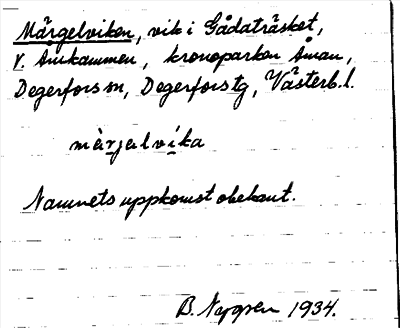 Märgelviken, vik i Gådaträsket,
V. Åmkammen, kronoparken Åman,
Degerfors sn, Degerfors tg, Västerb. l.
märjelvika
Namnets uppkomst obekant.
B. Nygren 1934.